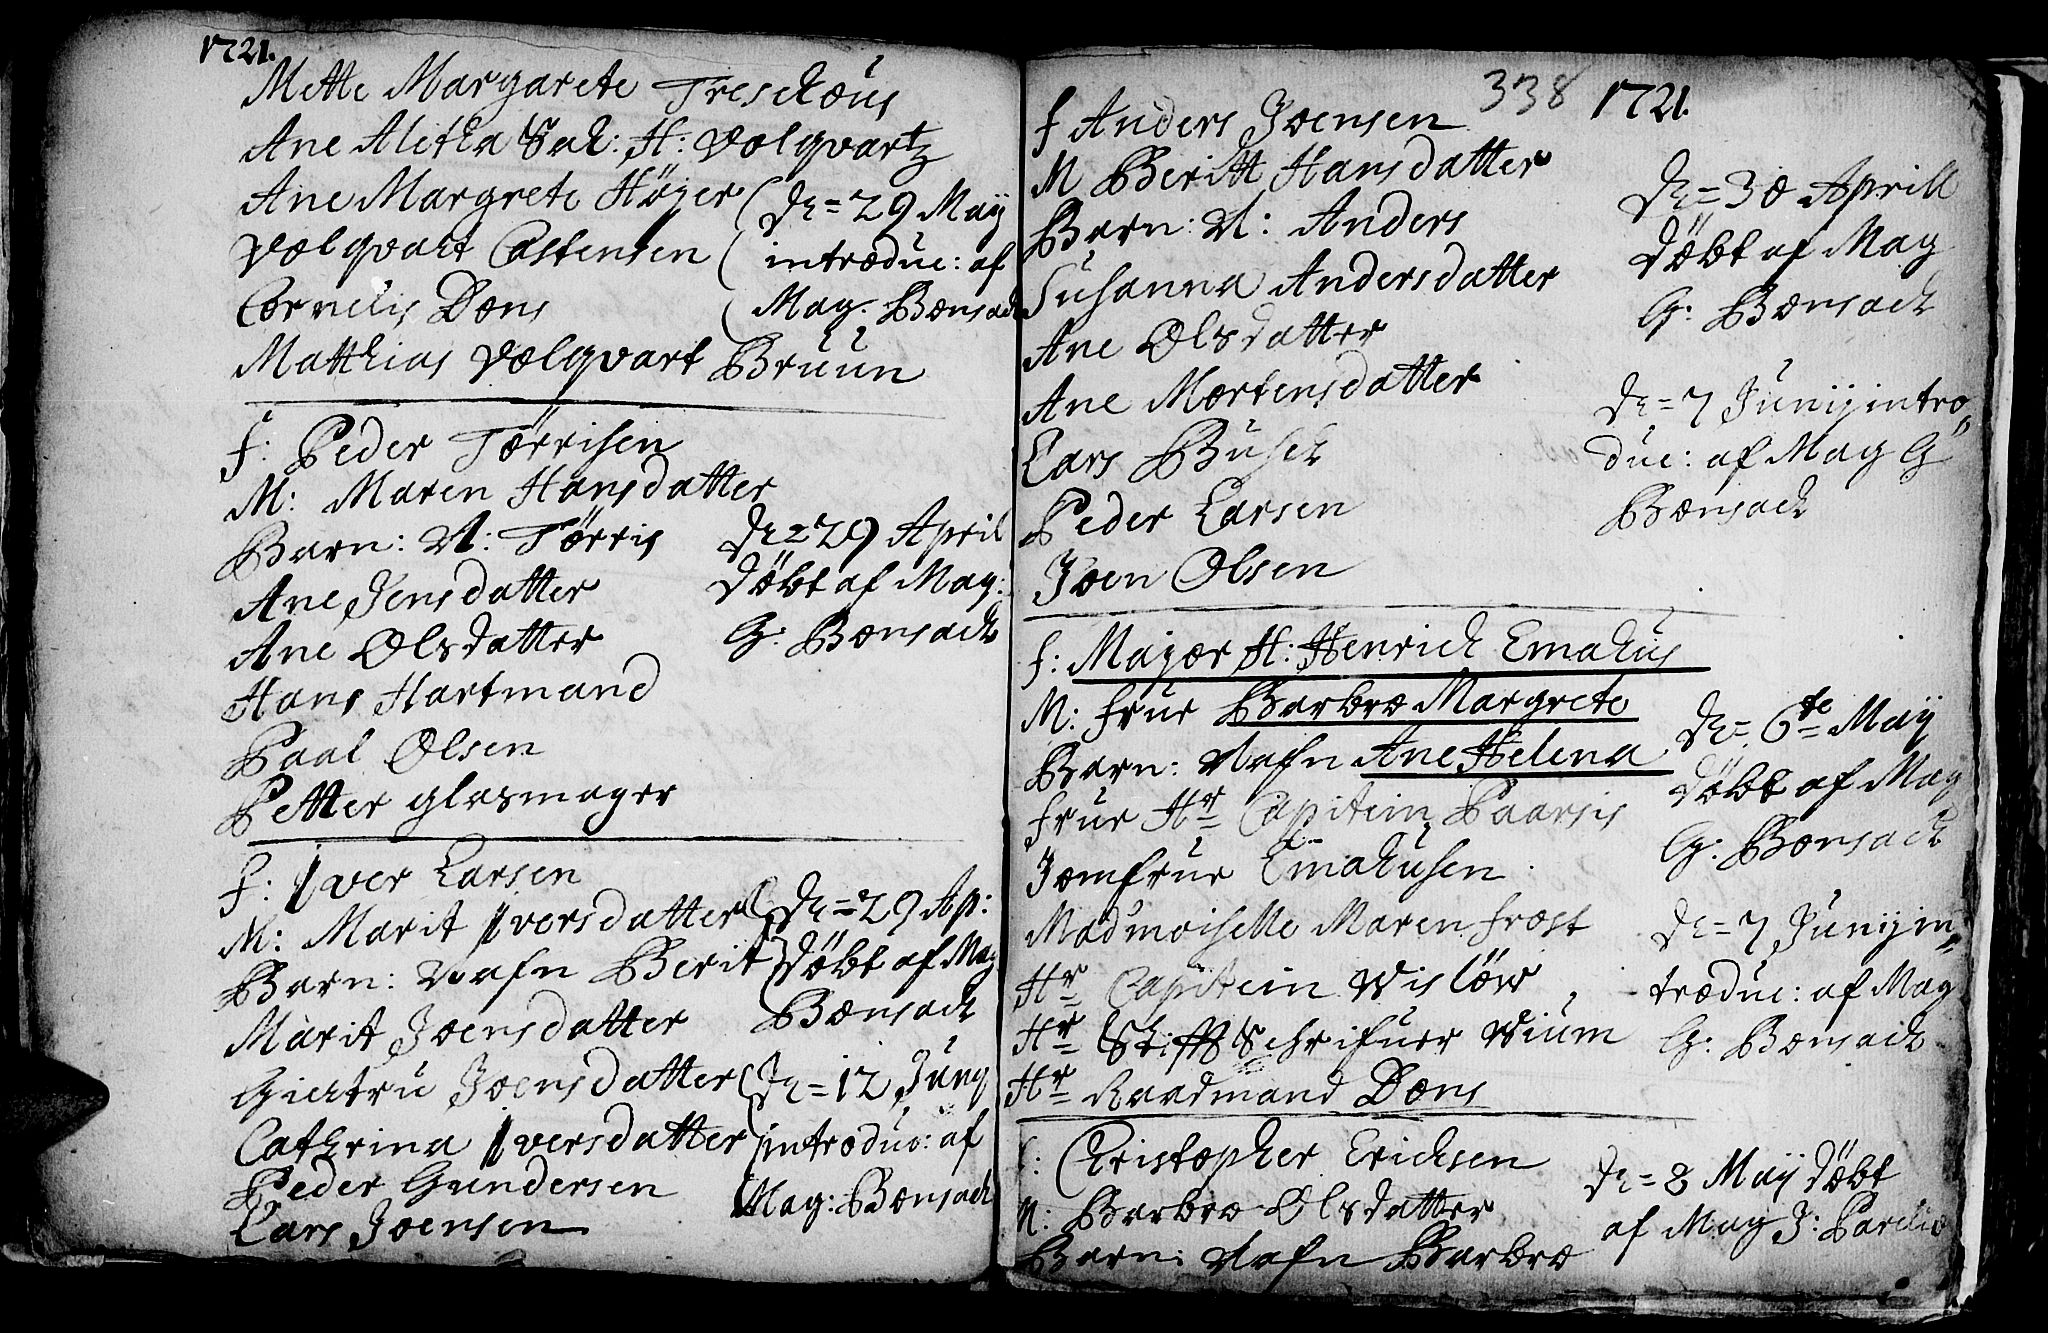 1721.
Mette Margarete Treschous
Ane Aletha Sal: H: Volqvartz
Ane Margrete Høyer
Volqvart Castensen
Cornelis Dons
Matthias Volqvart Bruun
D: = 29 Maij
introduc: af
Mag. Bonsach
f: Peder Torrisen
M: Maren Hansdatter
Barn: N: Tørris
Ane Jensdatter
Ane Olsdatter
Hans Hartmand
Paal Olsen
Petter glasmager
D: = 29 April
döbt af Mag:
G: Bonsach
f: Iver Larsen
M: Marit Iversdatter
Barn: Nafn Berit
Marit Joensdatter
Giertru Joensdatter
Cathrina Iversdatter
Peder Gundersen
Lars Joensen
D: = 29 Ap:
döbt af Mag
Bonsach
D: = 12 Juny
introduc: af
Mag: Bonsach
338 1721.
f Anders Joensen
M Beritt Hansdatter
Barn: N: Anders
Susanna Andersdatter
Ane Olsdatter
Ane Mortensdatter
Lars Busch
Peder Larsen
Joen Olsen
D: = 30 Aprill
döbt af Mag
G: Bonsach
D: = 7 Junij intro
duc: af Mag G
Bonsach
f: Major H: Henrich Emahus
M: frue Barbro Margrete
Barn: Nafn Ane Helena
frue Hr Capitein Paarsis
Jomfrue Emahusen
Madmoiselle Maren frost
Hr Capitein Wislöw
Hr Stiffts Schrifuer Wium
Hr Raadmand Dons
D: = 6te Maij
döbt af Mag
G: Bonsach
D: = 7 Junij in
troduc: af Mag
G: Bonsach
f: Christopher Erichsen
M: Barbro Olsdatter
Barn: Nafn Barbro
D: = 8 Maij döbt
af Mag J: Parelio